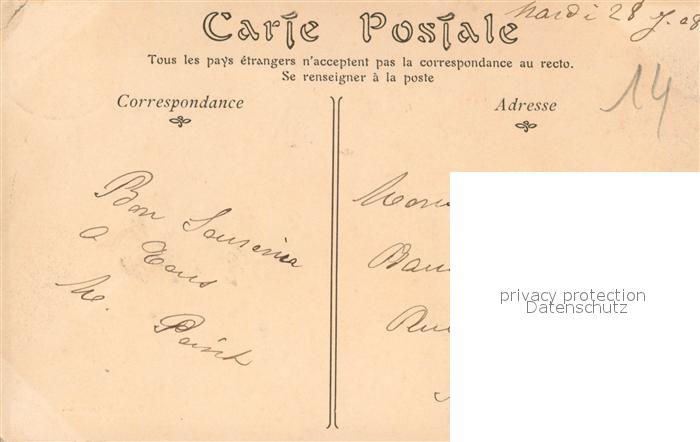 Mardi 28 J. 08
Carte Postale
Tous les pays étrangers n'acceptent pas la correspondance au recto.
Se renseigner à la poste
Correspondance
Adresse
14
Bon Souvenir
a Tous
M.
privacy protection
Datenschutz